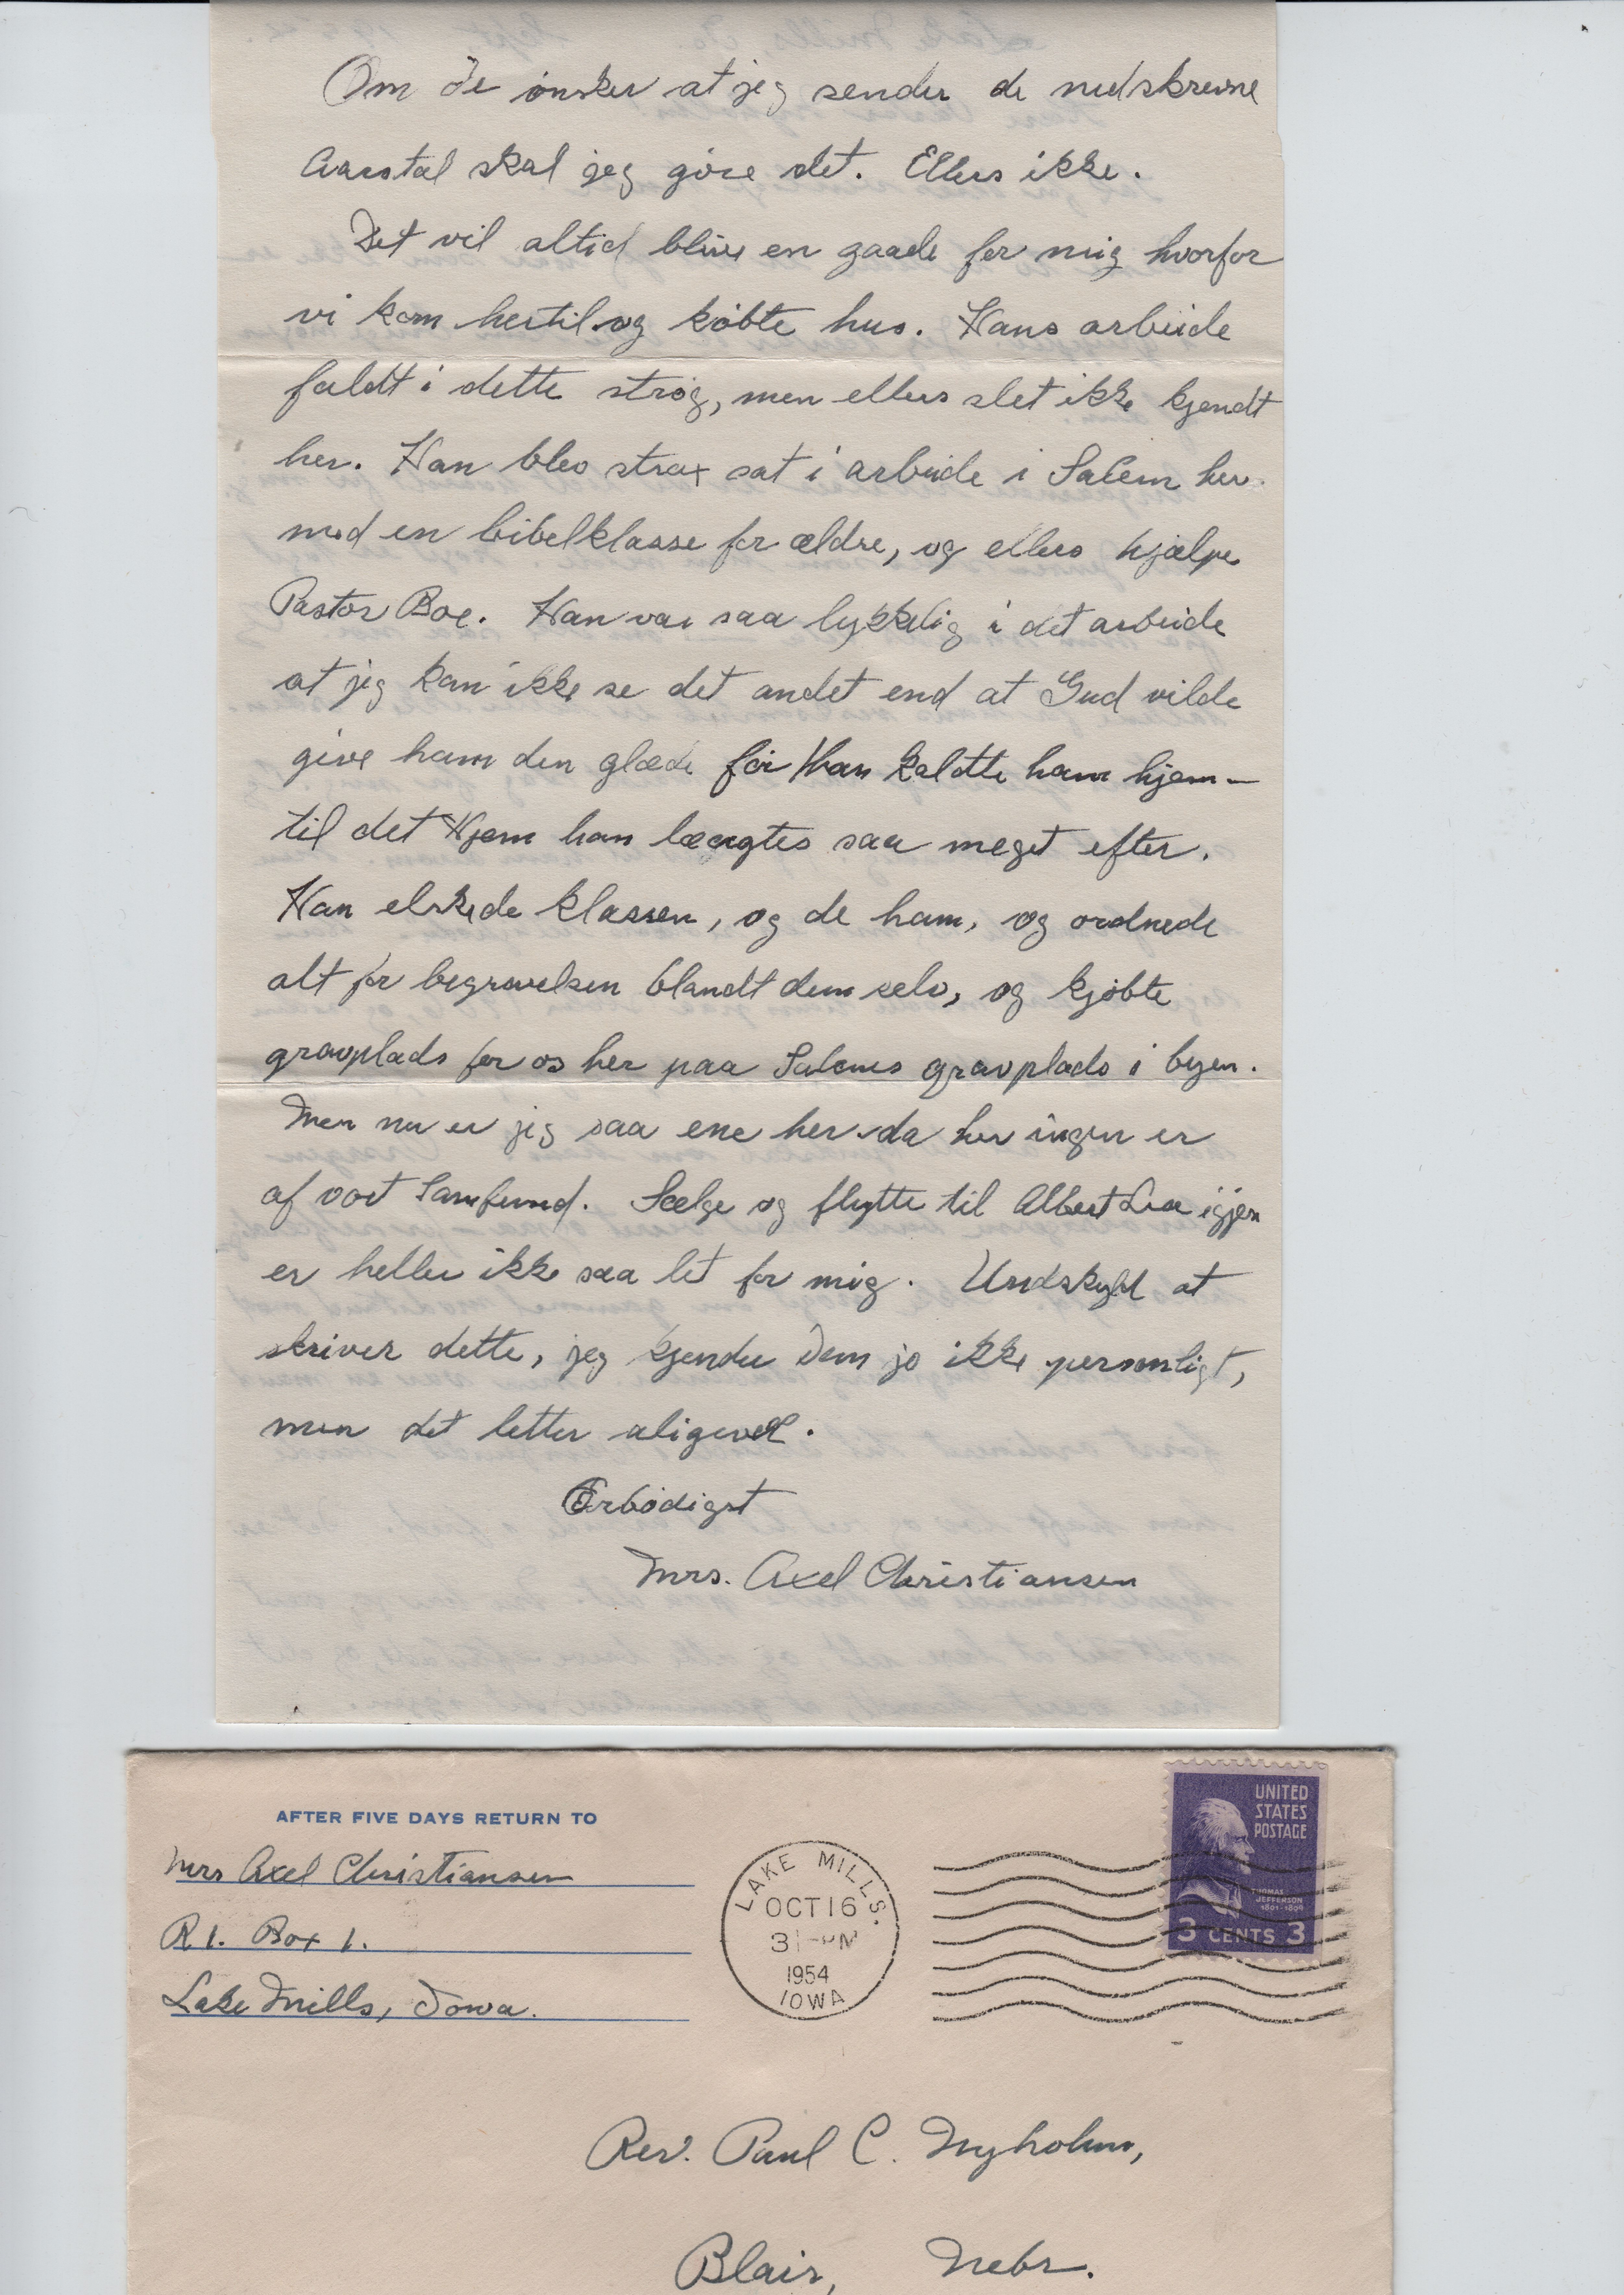 Om De ønsker at jeg sender de nedskrevne
Aarstal skal jeg gøre det. Ellers ikke.
Det vil altid blive en gaade for mig hvorfor
vi kom hertil og købte hus. Hans arbeide
faldt i dette strøg, men ellers slet ikke kjendt
her. Han blev strax sat i arbeide i Salem her
med en bibelklasse for ældre, og ellers hjælpe
Pastor Boe. Han var saa lykkelig i det arbeide
at jeg kan ikke se det andet end at Gud vilde
give ham den glæde før Han kaldte ham hjem-
til det Hjem han længtes saa meget efter.
Han elskede klassen, og de ham, og ordnede
alt for begravelsen blandt dem selv, og kjøbte
gravplads for os her paa Salems gravplads i byen.
Men nu er jeg saa ene her da her ingen er
af vort Samfund. Sælge og flytte til Albert Lea igjen
er heller ikke saa let for mig. Undskyld at
skriver dette, jeg kjender Dem jo ikke personligt,
men det letter aligevel.
Ærbødigst
Mrs. Axel Christiansen
AFTER FIVE DAYS RETURN TO
Mrs Axel Christiansen
R 1. Box 1.
Lake Mills, Iowa.
LAKE MILLS.
OCT 16
3 - PM
1954
IOWA
UNITED
STATES
POSTAGE
THOMAS
JEFFERSON
1801-1809
3 CENTS 3
Rev. Paul C. Nyholm,
Blair, Nebr.